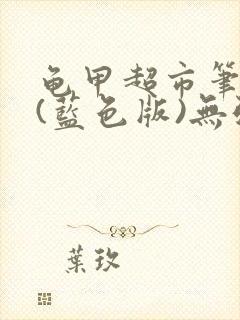 龟甲超市筆
(藍色版)無
葉玫